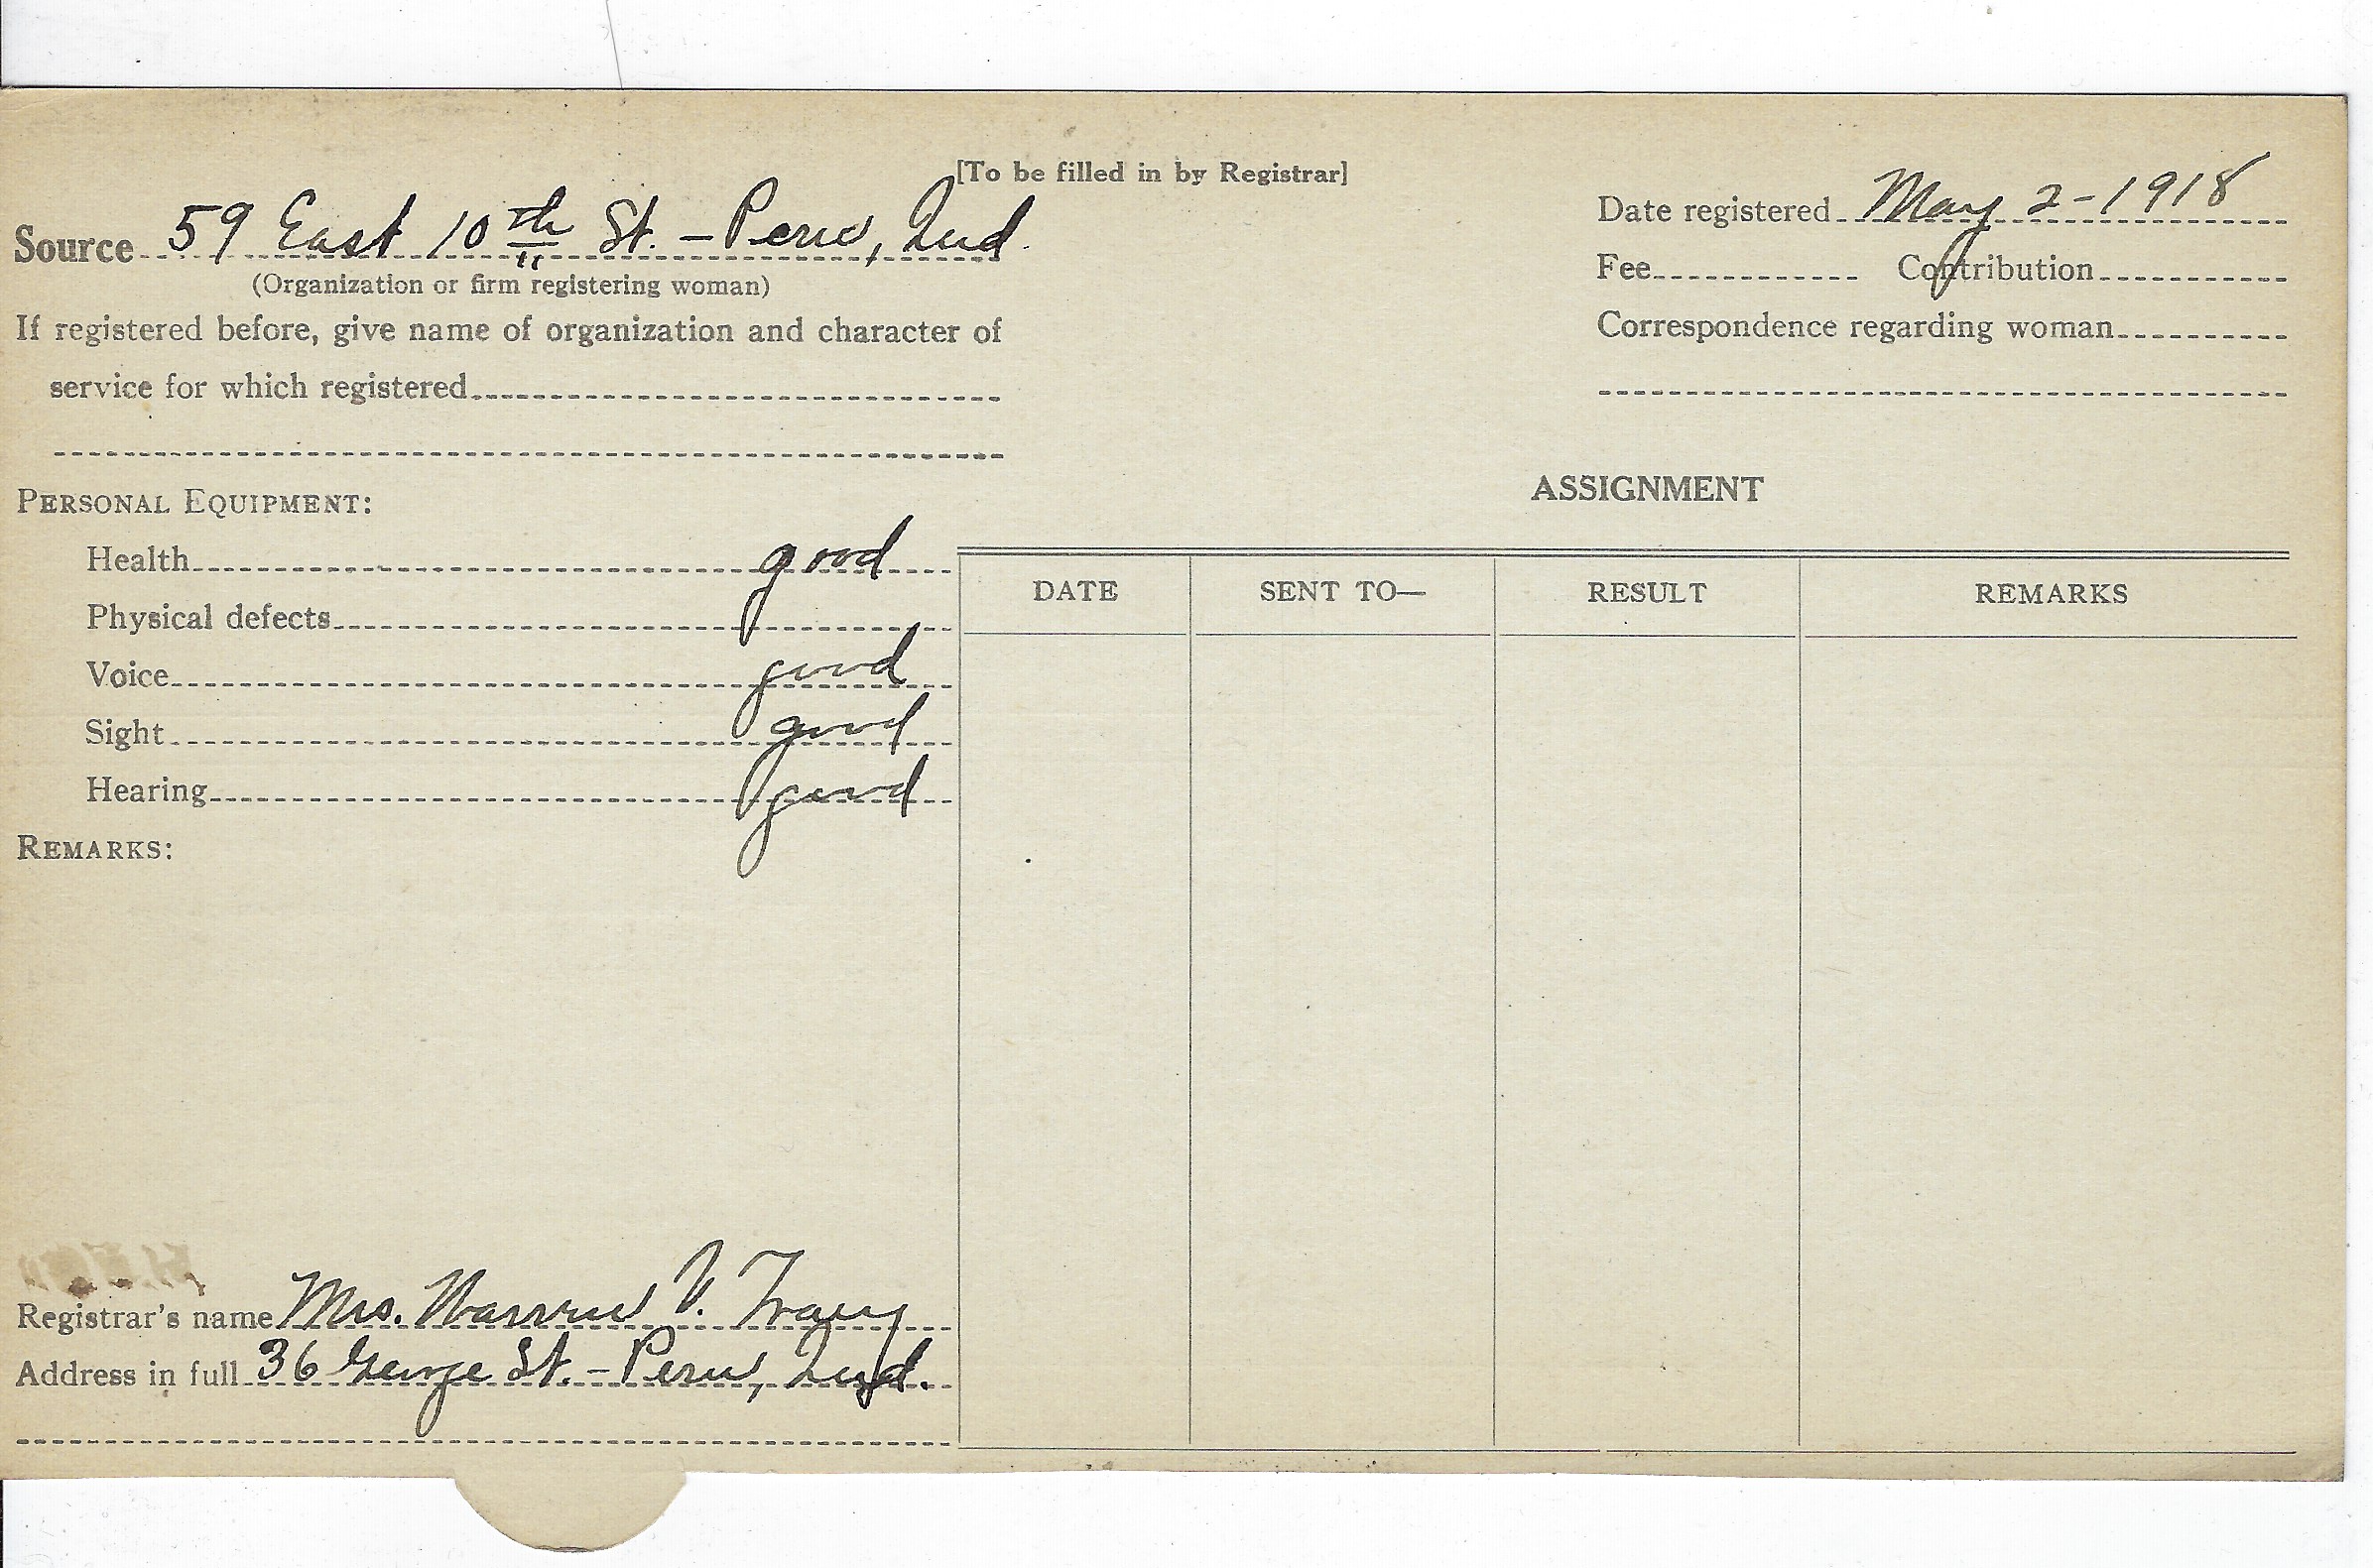 [To be filled in by Registrar]
Source 59 East 10th St. - Peru, Ind.
(Organization or firm registering woman)
If registered before, give name of organization and character of
service for which registered
Date registered May 2-1918
Fee Contribution
Correspondence regarding woman
PERSONAL EQUIPMENT:
Health good
Physical defects
Voice good
Sight good
Hearing good
REMARKS:
ASSIGNMENT
DATE SENT TO— RESULT REMARKS
Registrar's name Mrs. Warren V. Tracy
Address in full 36 George St. - Peru, Ind.